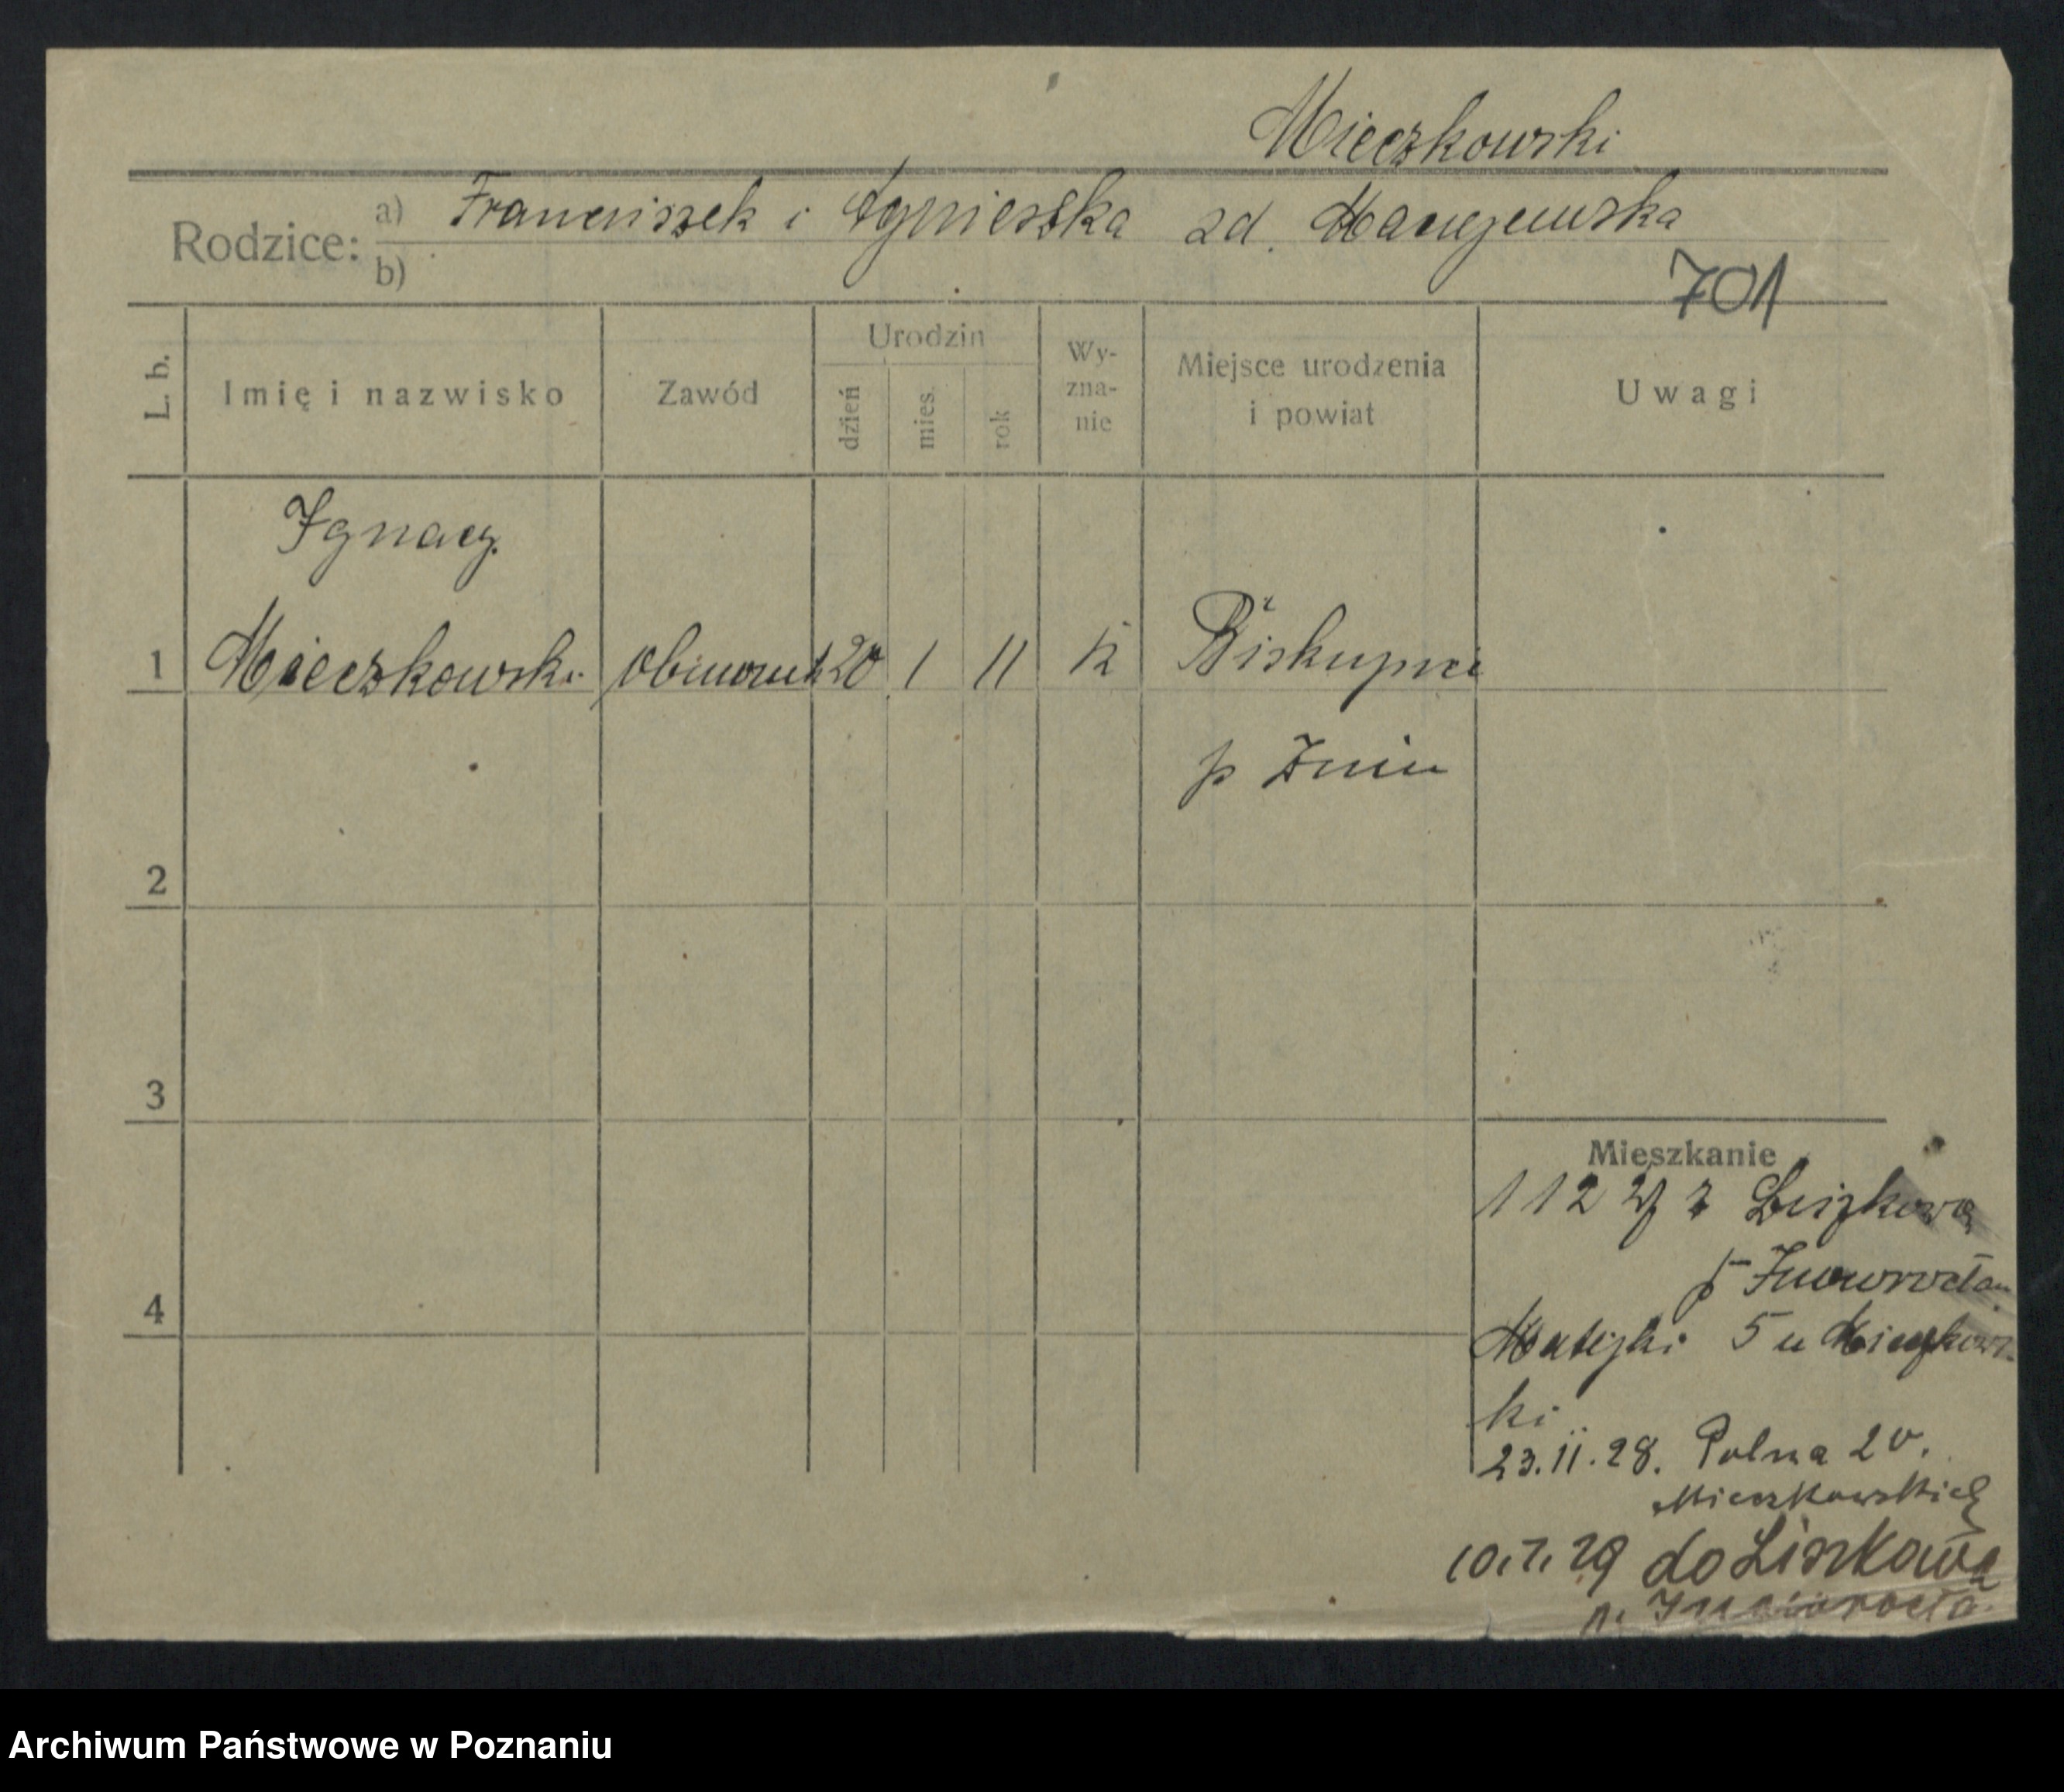 Mieczkowski
Rodzice: a) Franciszek i Agnieszka zd. Maciejewska
b)
701
L. b. Imię i nazwisko Zawód Urodzin dzień mies. rok Wy-zna-nie Miejsce urodzenia i powiat Uwagi
Ignacy
1 Mieczkowski 20 1 11 k Biskupin
p Żnin
2
3
Mieszkanie
1 12 27 z Liszkowa
p Inowrocław
4
Matejki 5 u Mieczkows-
ki
23.11.28. Polna 20.
Mieczkowskich
10.7.29 do Liszkowa
p. Inowrocła.
Archiwum Państwowe w Poznaniu